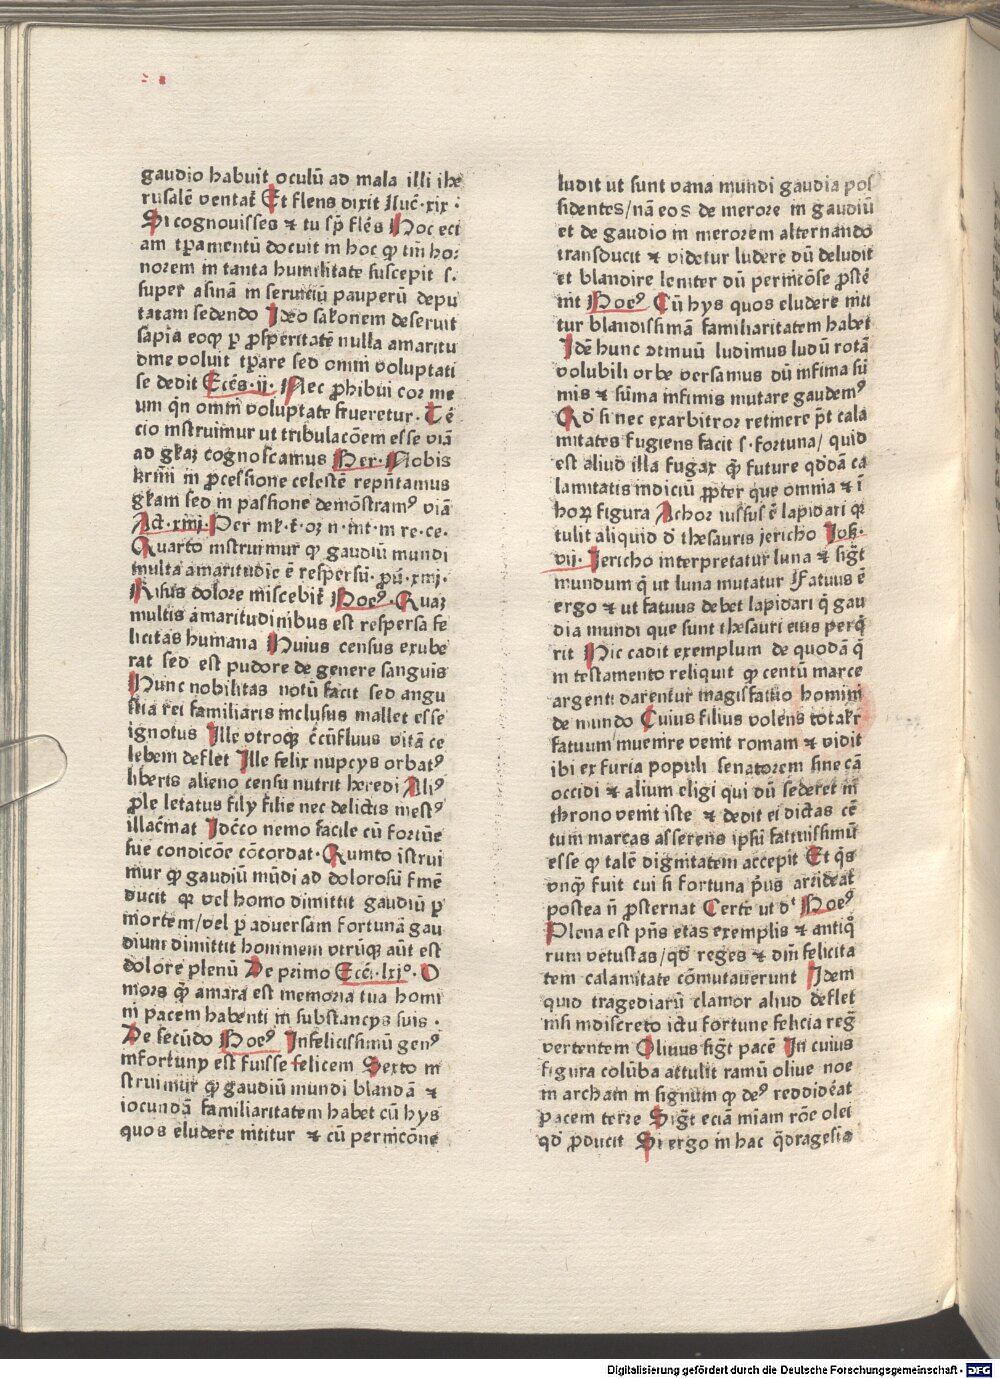 gaudio habuit oculū ad mala illi ihe
rusalē ventaꝶ Et flens dixit Iuc̄·xix·
Si cognouisses ⁊ tu sp̄ flēs Hoc eci
am tꝑamentū docuit in hoc ꝙ tm̄ ho⸗
norem in tanta humilitate suscepit s·
super asinā in seruiciū pauperū depu
tatam sedendo Ideo salomonem deseruit
sapīa eoꝙ ꝑ ꝓsperitatē nulla amaritu
dīne voluit tꝑare sed omni voluptati
se dedit Eccēs·ii· Nec ꝓhibui cor me
um qͥn omni voluptate frueretur· Tē
cio instruimur ut tribulacōem esse viā
ad gl̄iaꝫ cognoscamus Ber· Nobis
in ꝓcessione celestē repn̄tamus
gl̄iam sed in passione demōstramꝰ viā
Act·xiiij·Per ml̄·t̄·oꝫ n·int·in re·ce·
Quarto instruimur ꝙ gaudiū mundi
multa amaritudīe ē respersū·pū·xiiij·
Risus dolore miscebiꝶ Boeꝰ· Quaꝫ
multis amaritudinibus est respersa fe
licitas humana Huius census exube
rat sed est pudore de genere sanguis
Hunc nobilitas notū facit sed angu
stia rei familiaris inclusus mallet esse
ignotus Ille vtroqꝫ c̄cūfluus vitā ce
lebem deflet Ille felix nupcys orbatꝰ
liberis alieno censu nutrit heredi Aliꝰ
ꝓle letatus fily filie nec delictis mestꝰ
illac̄mat Idc̄co nemo facile cū fortūe
sue condicōe cōcordat· Quinto īstrui
mur ꝙ gaudiū mūdi ad dolorosū finē
ducit qꝛ vel homo dimittit gaudiū ꝑ
mortem/vel ꝑ aduersam fortunā gau
dium dimittit hominem vtrūqꝫ aūt est
dolore plenū De primo Ecc̄i·lxiº· O
mors qͣ̄ amara est memoria tua homi
ni pacem habenti in substancys suis·
De secūdo Boeꝰ Infelicissimū genꝰ
infortuny est fuisse felicem Sexto in
struimur ꝙ gaudiū mundi blandā ⁊
iocundā familiaritatem habet cū hys
quos eludere nititur ⁊ cū permcōne
ludit ut sunt vana mundi gaudia pos
sidentes/nā eos de merore in gaudiū
et de gaudio in merorem alternando
transducit ⁊ videtur ludere dū deludit
et blandire leniter dū permcōse ꝓstē
nit Boeꝰ Cū hys quos eludere niti
tur blandissimā familiaritatem habet
Idē hunc ꝯtinuū ludimus ludū rotā
volubili orbe versamus dū infima sū
mis ⁊ sūma infimis mutare gaudemꝰ
Qd̄ si nec ex arbitror retinere pt̄ cala
mitates fugiens facit s·fortuna/ quid
est aliud illa fugax qͣ̄ future qd̄dā ca
lamitatis indiciū ꝓpter que omnia ⁊ ī
hoꝝ figura Achor iussus ē lapidari qꝛ
tulit aliquid d̄ thesauris jericho Ios̄·
vij· Jericho interpretatur luna ⁊ sigt̄
mundum qͥ ut luna mutatur Fatuus ē
ergo ⁊ ut fatuus debet lapidari qͥ gau
dia mundi que sunt thesauri eius perqͥ
rit Hic cadit exemplum de quodā qͥ
in testamento reliquit ꝙ centū marce
argenti darentur magis fatuo homini
de mundo Cuius filius volens
fatuum inuenire venit romam ⁊ vidit
ibi ex furia populi senatorem sine cā
occidi ⁊ alium eligi qui dū sederet in
throno venit iste ⁊ dedit ei dictas cē
tum marcas asserens ipsū fatuissimū
esse ꝙ talē dignitatem accepit Et qͥs
vnqͣ̄ fuit cui si fortuna pͥus arrideat
postea n̄ ꝓsternat Certe ut dᵗ Boeꝰ
Plena est pn̄s etas exemplis ⁊ antiqͣ
rum vetustas/qd̄ reges ⁊ dn̄i felicita
tem calamitate cōmutauerunt Idem
quid tragediarū clamor aliud deflet
nisi indiscreto ictu fortune felicia regͣ
vertentem Oliuus sigt̄ pacē In cuius
figura colūba attulit ramū oliue noe
in archam in signum ꝙ deꝰ reddidēat
pacem terre Sigt̄ eciā miam rōe olei
qd̄ ꝓducit Si ergo in hac qͣdragesia
Digitalisierung gefördert durch die Deutsche Forschungsgemeinschaft - DFG